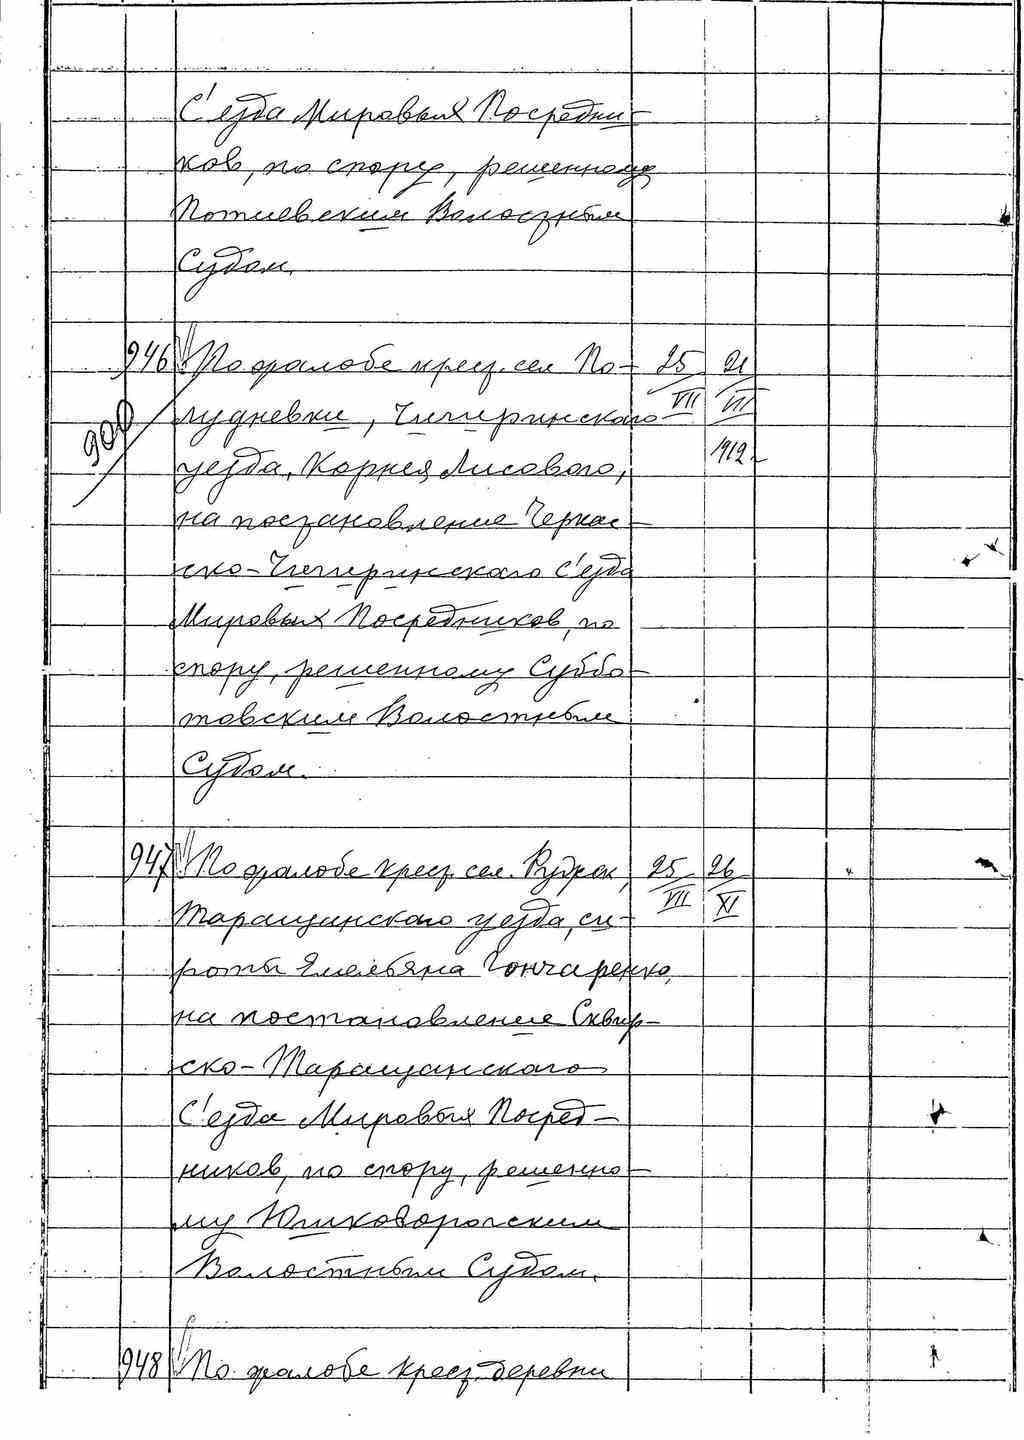 С'езда Мировых Посредни-
ков, по спору, решенному
Потиевским Волостным
Судом.
946 По жалобе крест. сел. По- 25 21
лудневки, Чигиринского VII VII
900
уезда, Корнея Лисового, 1912
на постановление Черкас-
ско-Чигиринского С'езда
Мировых Посредников, по
спору, решенному Суббо-
товским Волостным
Судом.
947 По жалобе крест. сел. Рудок, 25 26 "
Таращинского уезда, си- VII XI
роты Емельяна Гончаренко,
на постановление Сквир-
ско-Таращанского
С'езда Мировых Посред-
ников, по спору, решенно-
му Юшковорогским
Волостным Судом.
948 По жалобе крест. деревни